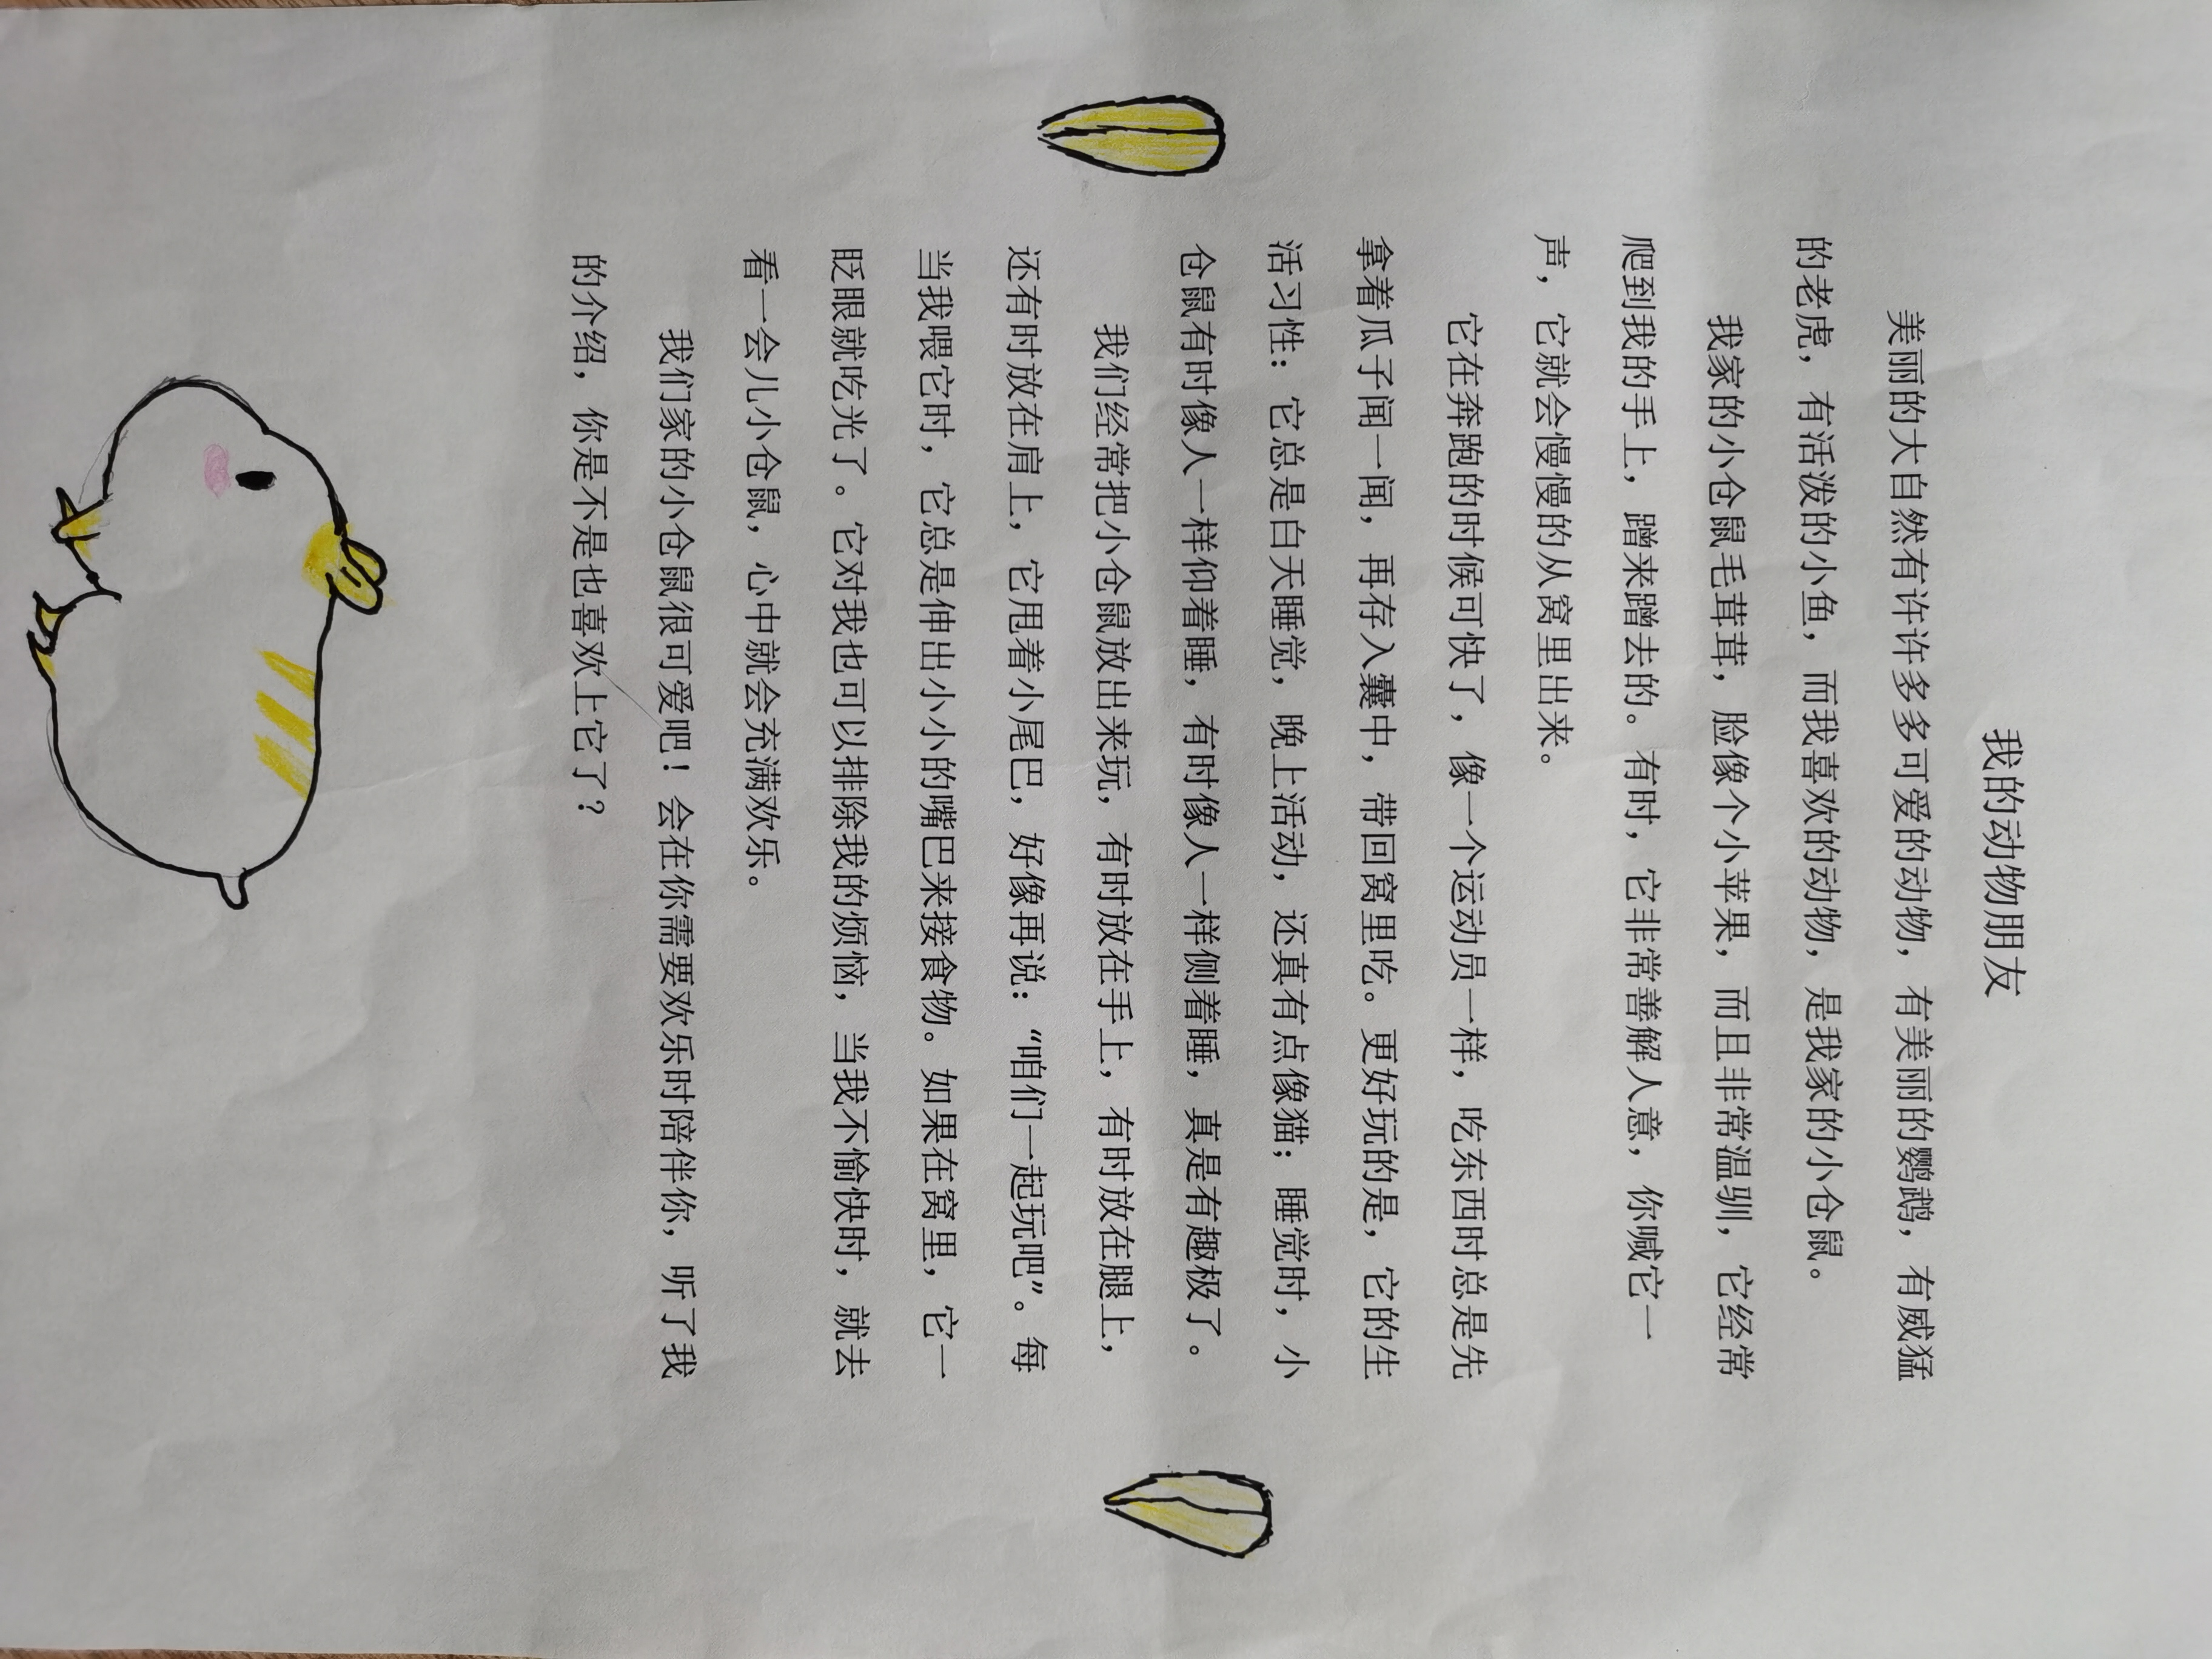 我的动物朋友
美丽的大自然有许许多多可爱的动物，有美丽的鹦鹉，有威猛
的老虎，有活泼的小鱼，而我喜欢的动物，是我家的小仓鼠。
我家的小仓鼠毛茸茸，脸像个小苹果，而且非常温驯，它经常
爬到我的手上，蹭来蹭去的。有时，它非常善解人意，你喊它一
声，它就会慢慢的从窝里出来。
它在奔跑的时候可快了，像一个运动员一样，吃东西时总是先
拿着瓜子闻一闻，再存入囊中，带回窝里吃。更好玩的是，它的生
活习性：它总是白天睡觉，晚上活动，还真有点像猫；睡觉时，小
仓鼠有时像人一样仰着睡，有时像人一样侧着睡，真是有趣极了。
我们经常把小仓鼠放出来玩，有时放在手上，有时放在腿上，
还有时放在肩上，它甩着小尾巴，好像再说：“咱们一起玩吧”。每
当我喂它时，它总是伸出小小的嘴巴来接食物。如果在窝里，它一
眨眼就吃光了。它对我也可以排除我的烦恼，当我不愉快时，就去
看一会儿小仓鼠，心中就会充满欢乐。
我们家的小仓鼠很可爱吧！会在你需要欢乐时陪伴你，听了我
的介绍，你是不是也喜欢上它了？